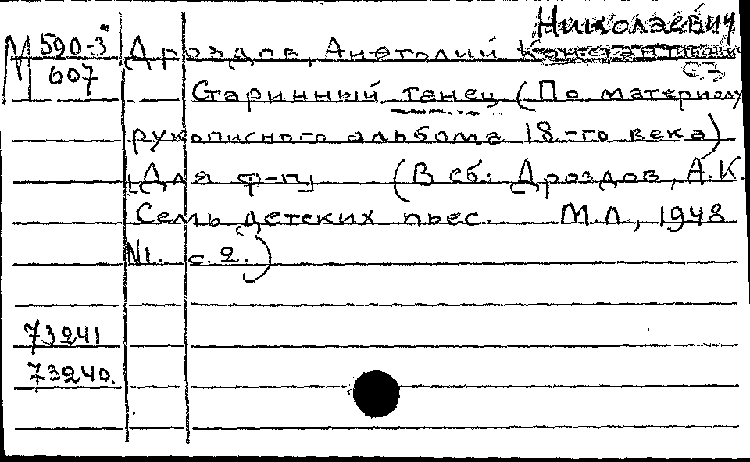 Николаевич
М 590-3
607
Дроздов, Анатолий
Старинный танец (По материалу
рукописного альбома 18-го века)
[Для ф-п] (В сб: Дроздов, А.К.
Семь детских пьес. М.Л, 1948
N1. с 2.)
73241
73240.